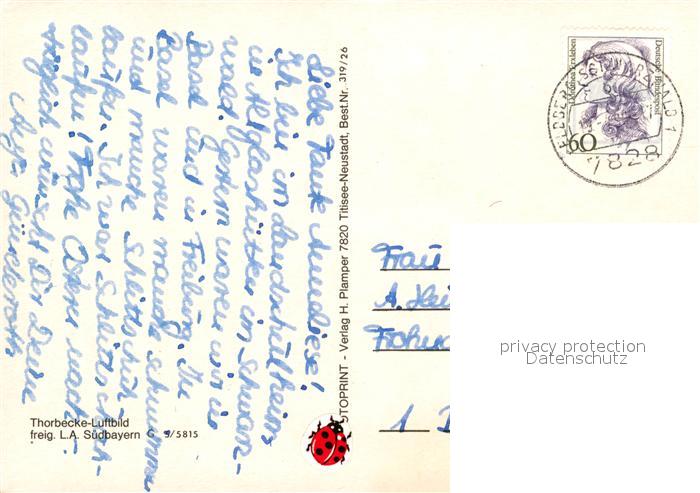 Liebe Tante Anneliese!
Ich bin im Landschulheim
in Altglashütten im Schwarz-
wald. Gestern waren wir in
Basel und in Freiburg. In
Basel waren manche schwimmen
und manche Schlittschuh-
laufen. Ich war Schlittschuh-
laufen! Frohe Ostern nach-
träglich wünscht Dir Deine
Thorbecke-Luftbild
freig. L.A. Südbayern G 5/5815
TOPRINT - Verlag H. Plamper 7820 Titisee-Neustadt, Best.Nr. 319/26
Deutsche Bundespost
60
FELDBERG (SCHWARZWALD) 1
7828
Frau
A.
1
privacy protection
Datenschutz